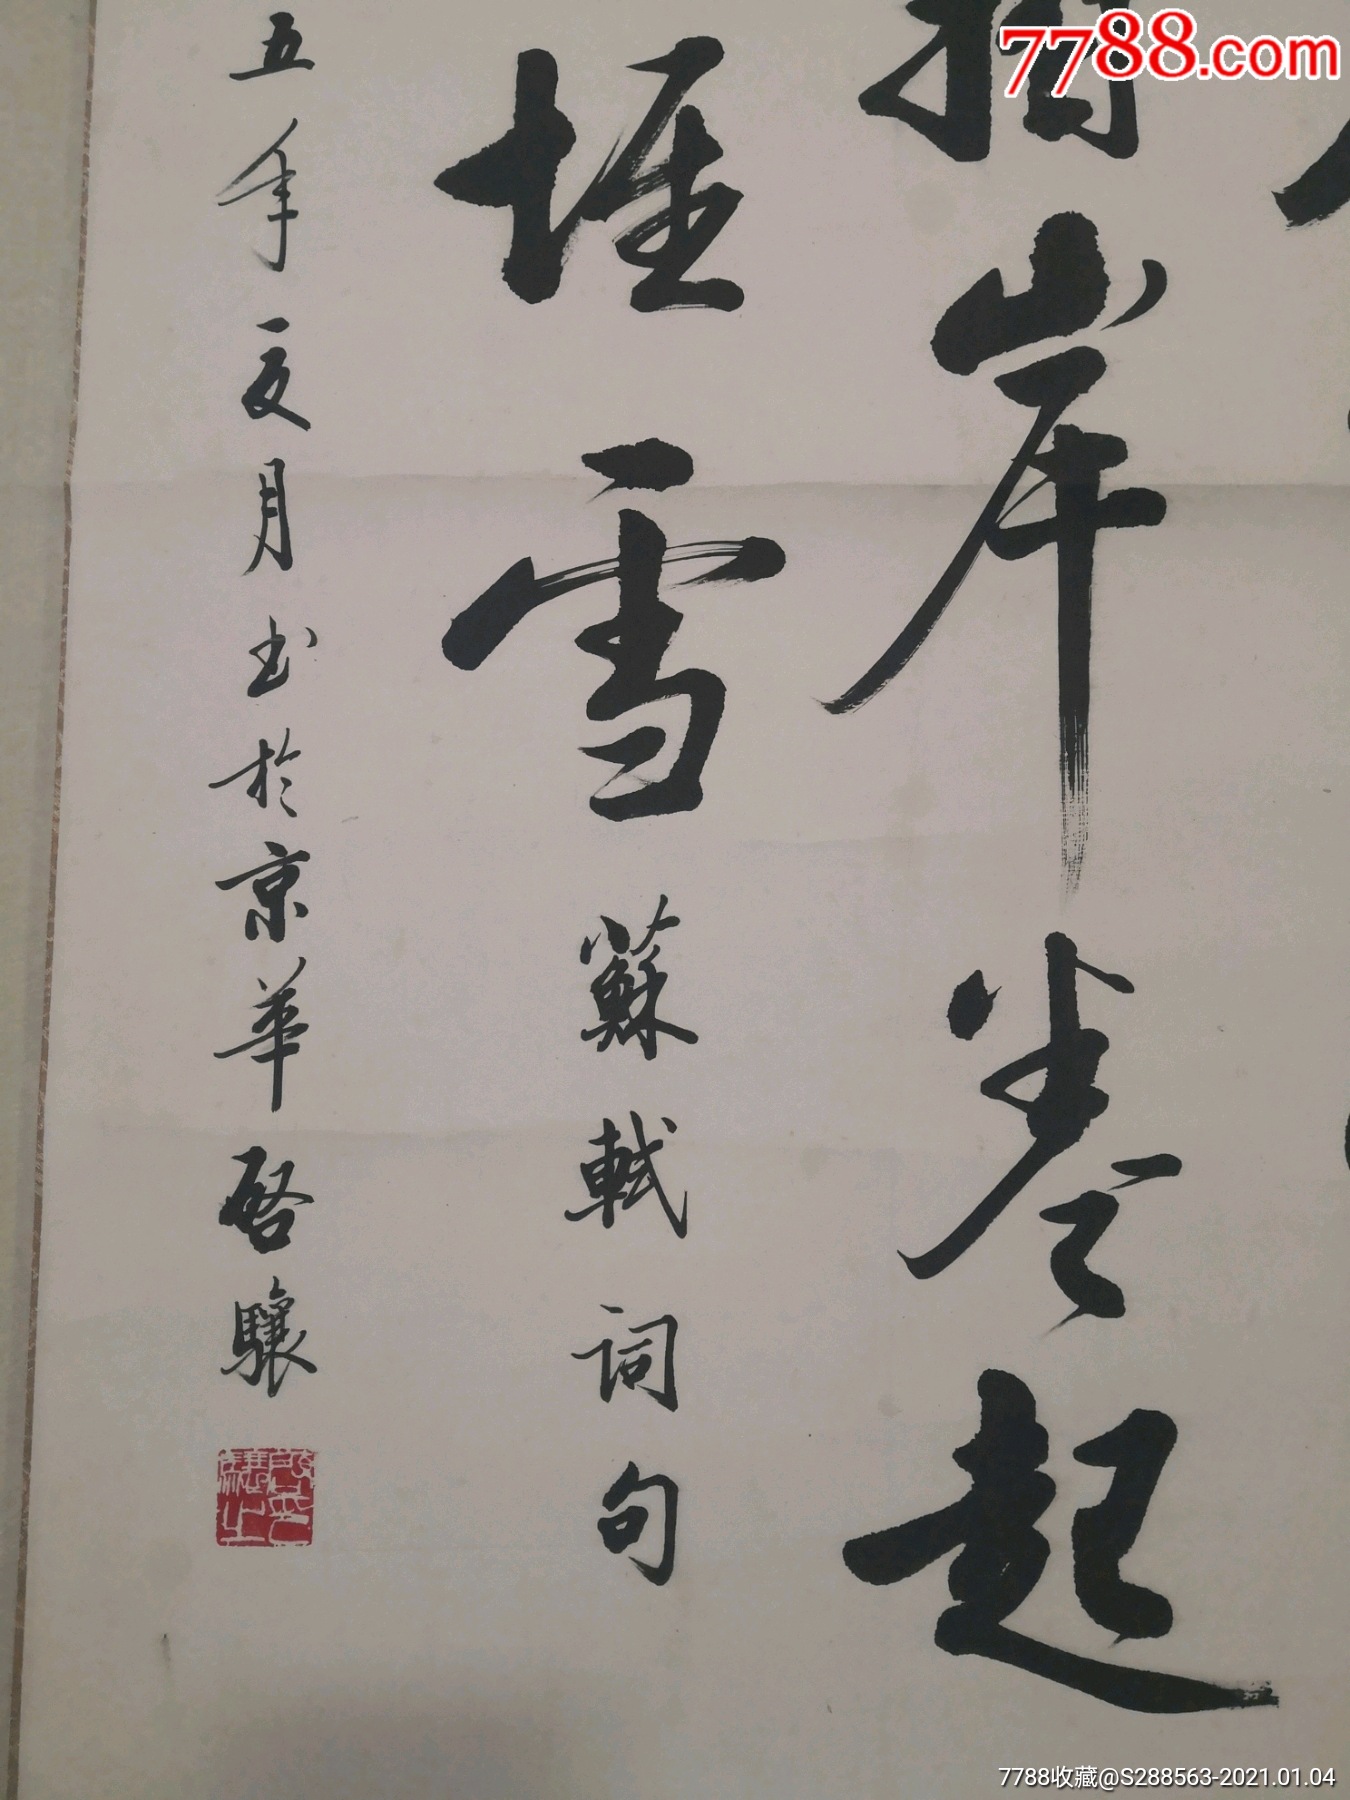 7788.com
拍岸卷起
堆雪 蘇軾詞句
五年夏月书於京華啓驤
7788收藏@S288563-2021.01.04